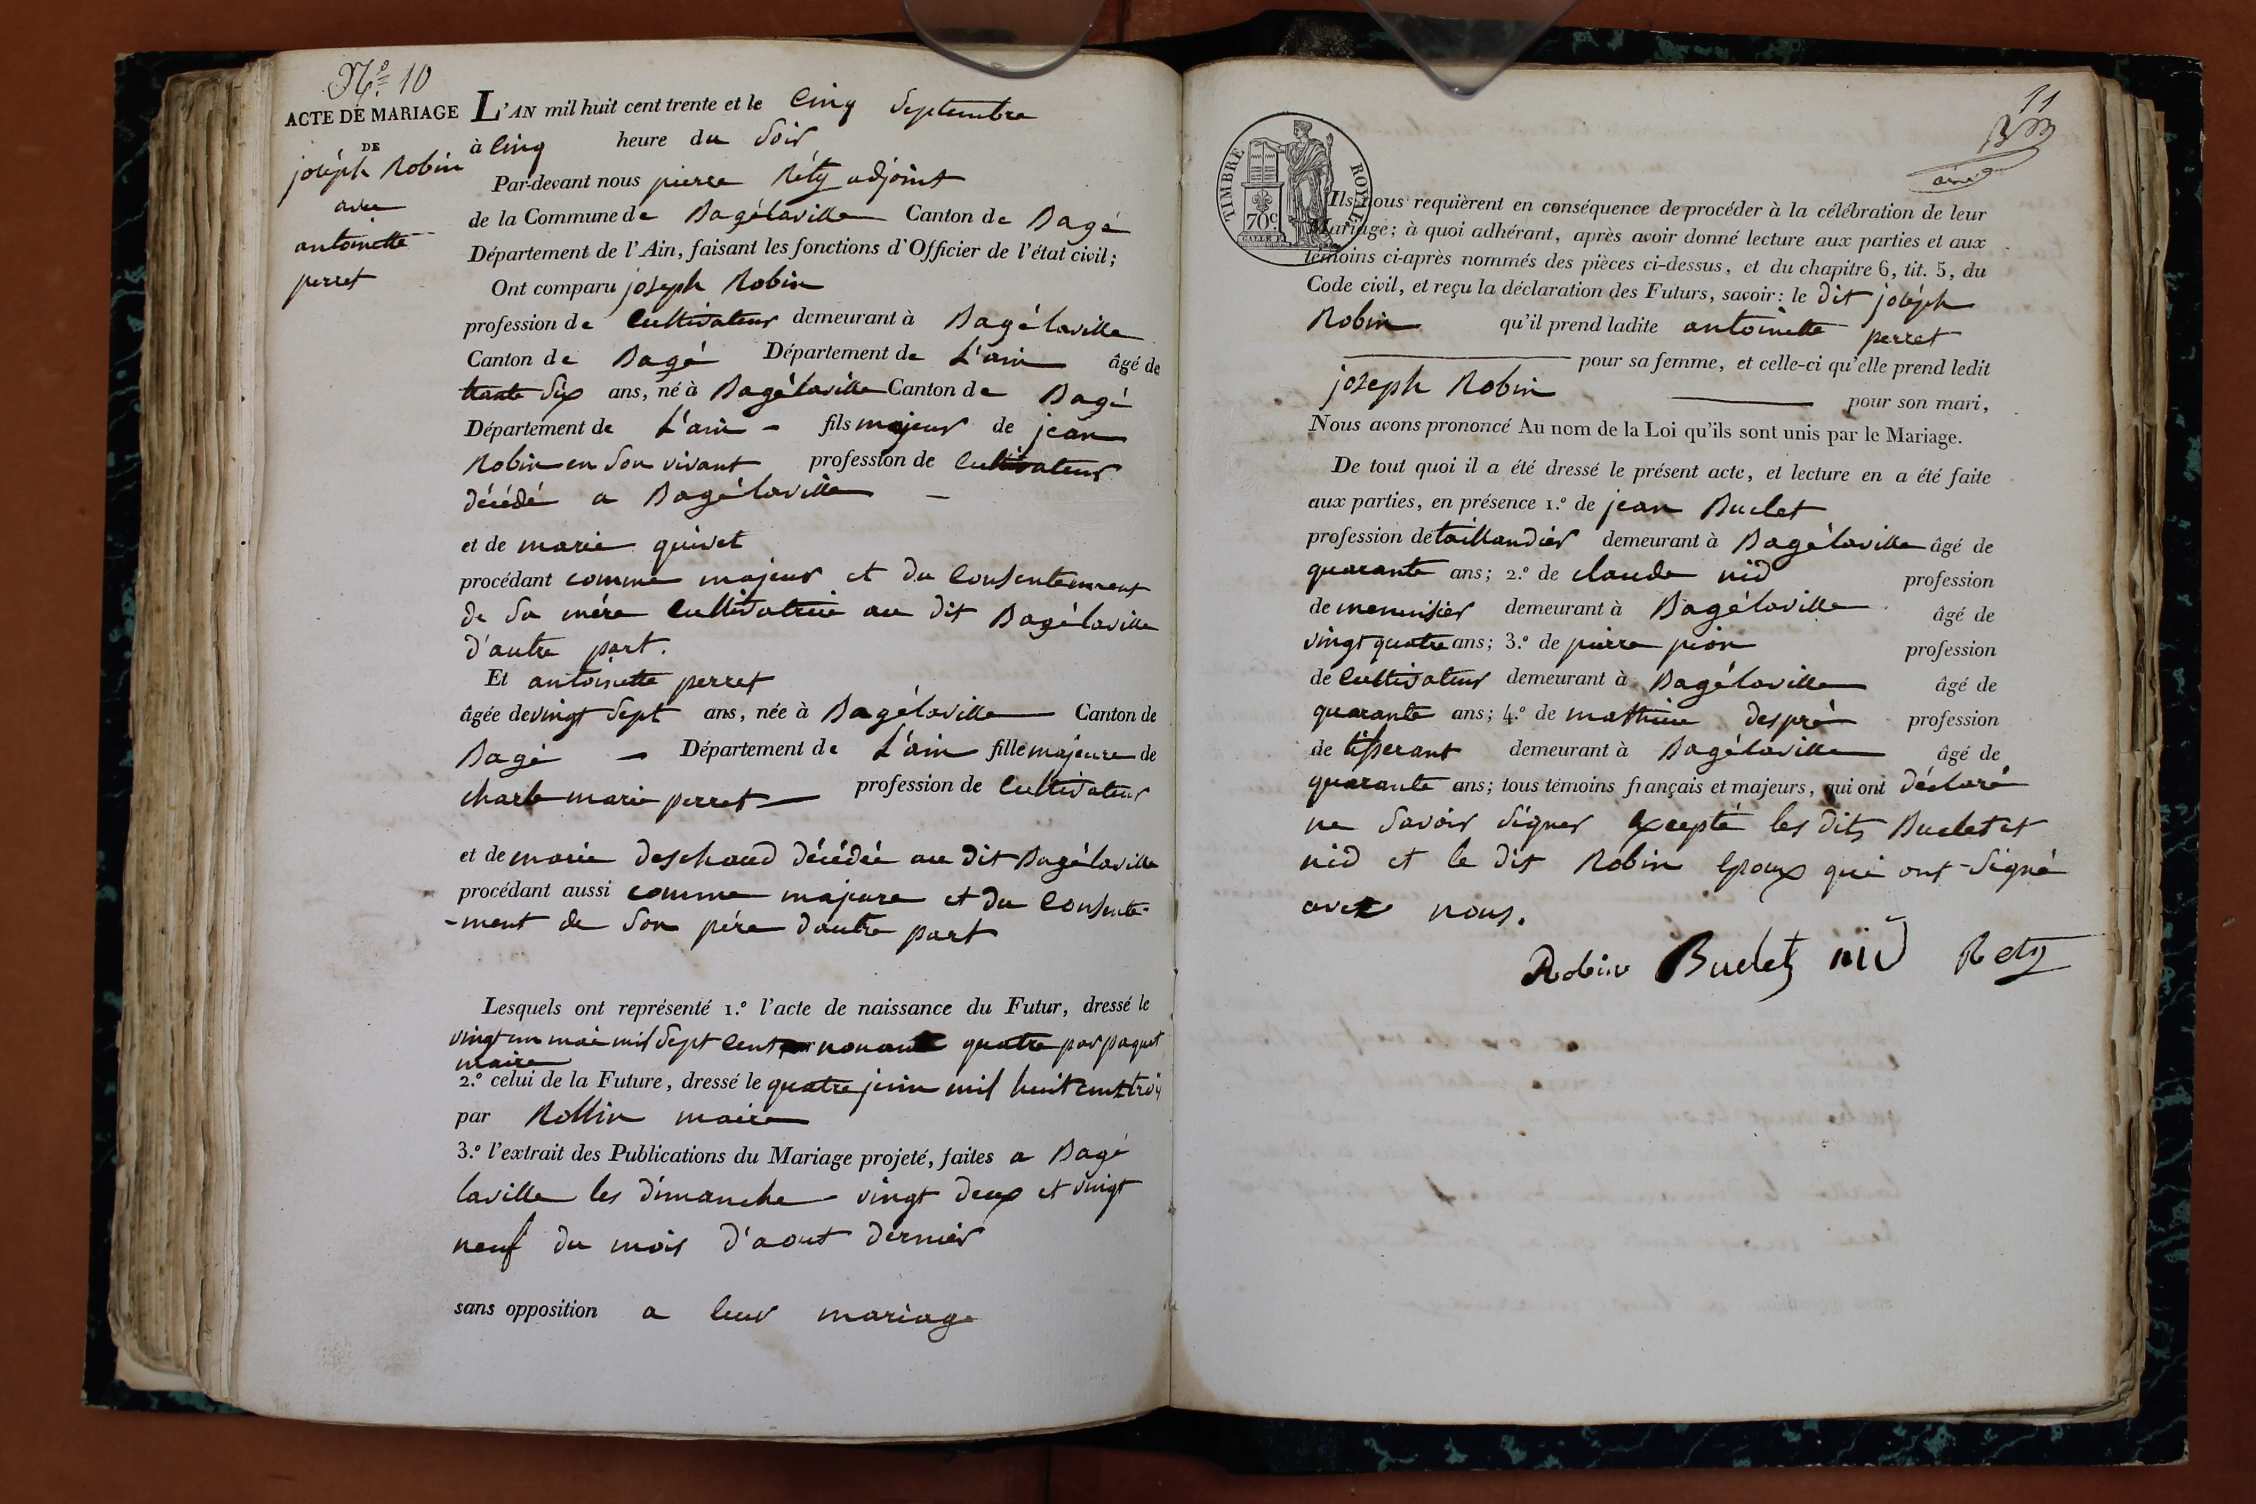 N.o 10
ACTE DE MARIAGE
DE
joséph Robin
avec
antoinette
perret
L'AN mil huit cent trente et le Cinq Septembre
à Cinq heure du Soir
Par-devant nous pierre Réty adjoint
de la Commune de Bagélaville Canton de Bagé
Département de l'Ain, faisant les fonctions d'Officier de l'état civil;
Ont comparu joseph Robin
profession de Cultivateur demeurant à Bagélaville
Canton de Bagé Département de L'ain âgé de
trante Six ans, né à Bagélaville Canton de Bagé
Département de L'ain - fils majeur de jean
Robin en Son vivant profession de Cultivateur
décédé a Bagélaville -
et de marie quivet
procédant comme majeur et du Consentement
de Sa mére Cultivatrice au dit Bagélaville
d'autre part.
Et antoinette perret
âgée de vingt Sept ans, née à Bagélaville Canton de
Bagé - Département de L'ain fille majeure de
charle marie perret profession de Cultivateur
et de marie deschaud décédée au dit Bagélaville
procédant aussi comme majeure et du Consente-
-ment de Son pére d'autre part
Lesquels ont représenté 1.o l'acte de naissance du Futur, dressé le
vingt un mai mil Sept Cent nonante quatre par paquet
maire
2.o celui de la Future, dressé le quatre juin mil huit cent trois
par Rollin maire
3.o l'extrait des Publications du Mariage projeté, faites a Bagé
laville les dimanche vingt deux et vingt
neuf du mois d'aout dernier
sans opposition a leur mariage
11
TIMBRE ROYAL
70c
Ils nous requièrent en conséquence de procéder à la célébration de leur
Mariage; à quoi adhérant, après avoir donné lecture aux parties et aux
témoins ci-après nommés des pièces ci-dessus, et du chapitre 6, tit. 5, du
Code civil, et reçu la déclaration des Futurs, savoir: le dit joséph
Robin qu'il prend ladite antoinette perret
pour sa femme, et celle-ci qu'elle prend ledit
joseph Robin pour son mari,
Nous avons prononcé Au nom de la Loi qu'ils sont unis par le Mariage.
De tout quoi il a été dressé le présent acte, et lecture en a été faite
aux parties, en présence 1.o de jean Buclet
profession de taillandier demeurant à Bagélaville âgé de
quarante ans; 2.o de claude nid profession
de menuisier demeurant à Bagélaville âgé de
vingt quatre ans; 3.o de pierre pion profession
de Cultivateur demeurant à Bagélaville âgé de
quarante ans; 4.o de mathieu despré profession
de tisserant demeurant à Bagélaville âgé de
quarante ans; tous témoins français et majeurs, qui ont déclaré
ne Savoir Signer Excepté les dits Buclet et
nid et le dit Robin Epoux qui ont Signé
avec nous.
Robin Buclet nid Rety